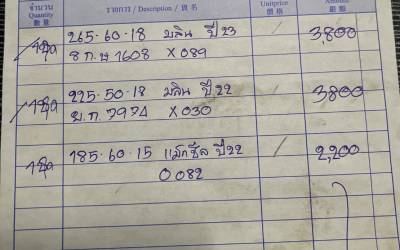 จำนวน Quantity 數量 รายการ / Description / 貨名 Unitprice 價格 Amount 銀額
1ชุด 265-60-18 มลิน ปี23 / 3,800
8 ก.ษ 1608 X 089
1ชุด 225-50-18 มลิน ปี22 / 3,800
พ.ก 7974 X 030
1ชุด 185-60-15 แม็กซีส ปี22 / 2,200
0 082